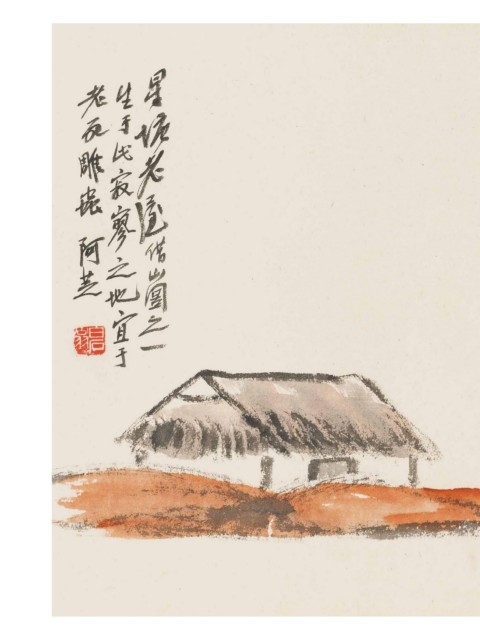 星塘老屋借山圖之一
生于此寂寥之地宜于
老死雕蟲 阿芝
白石翁